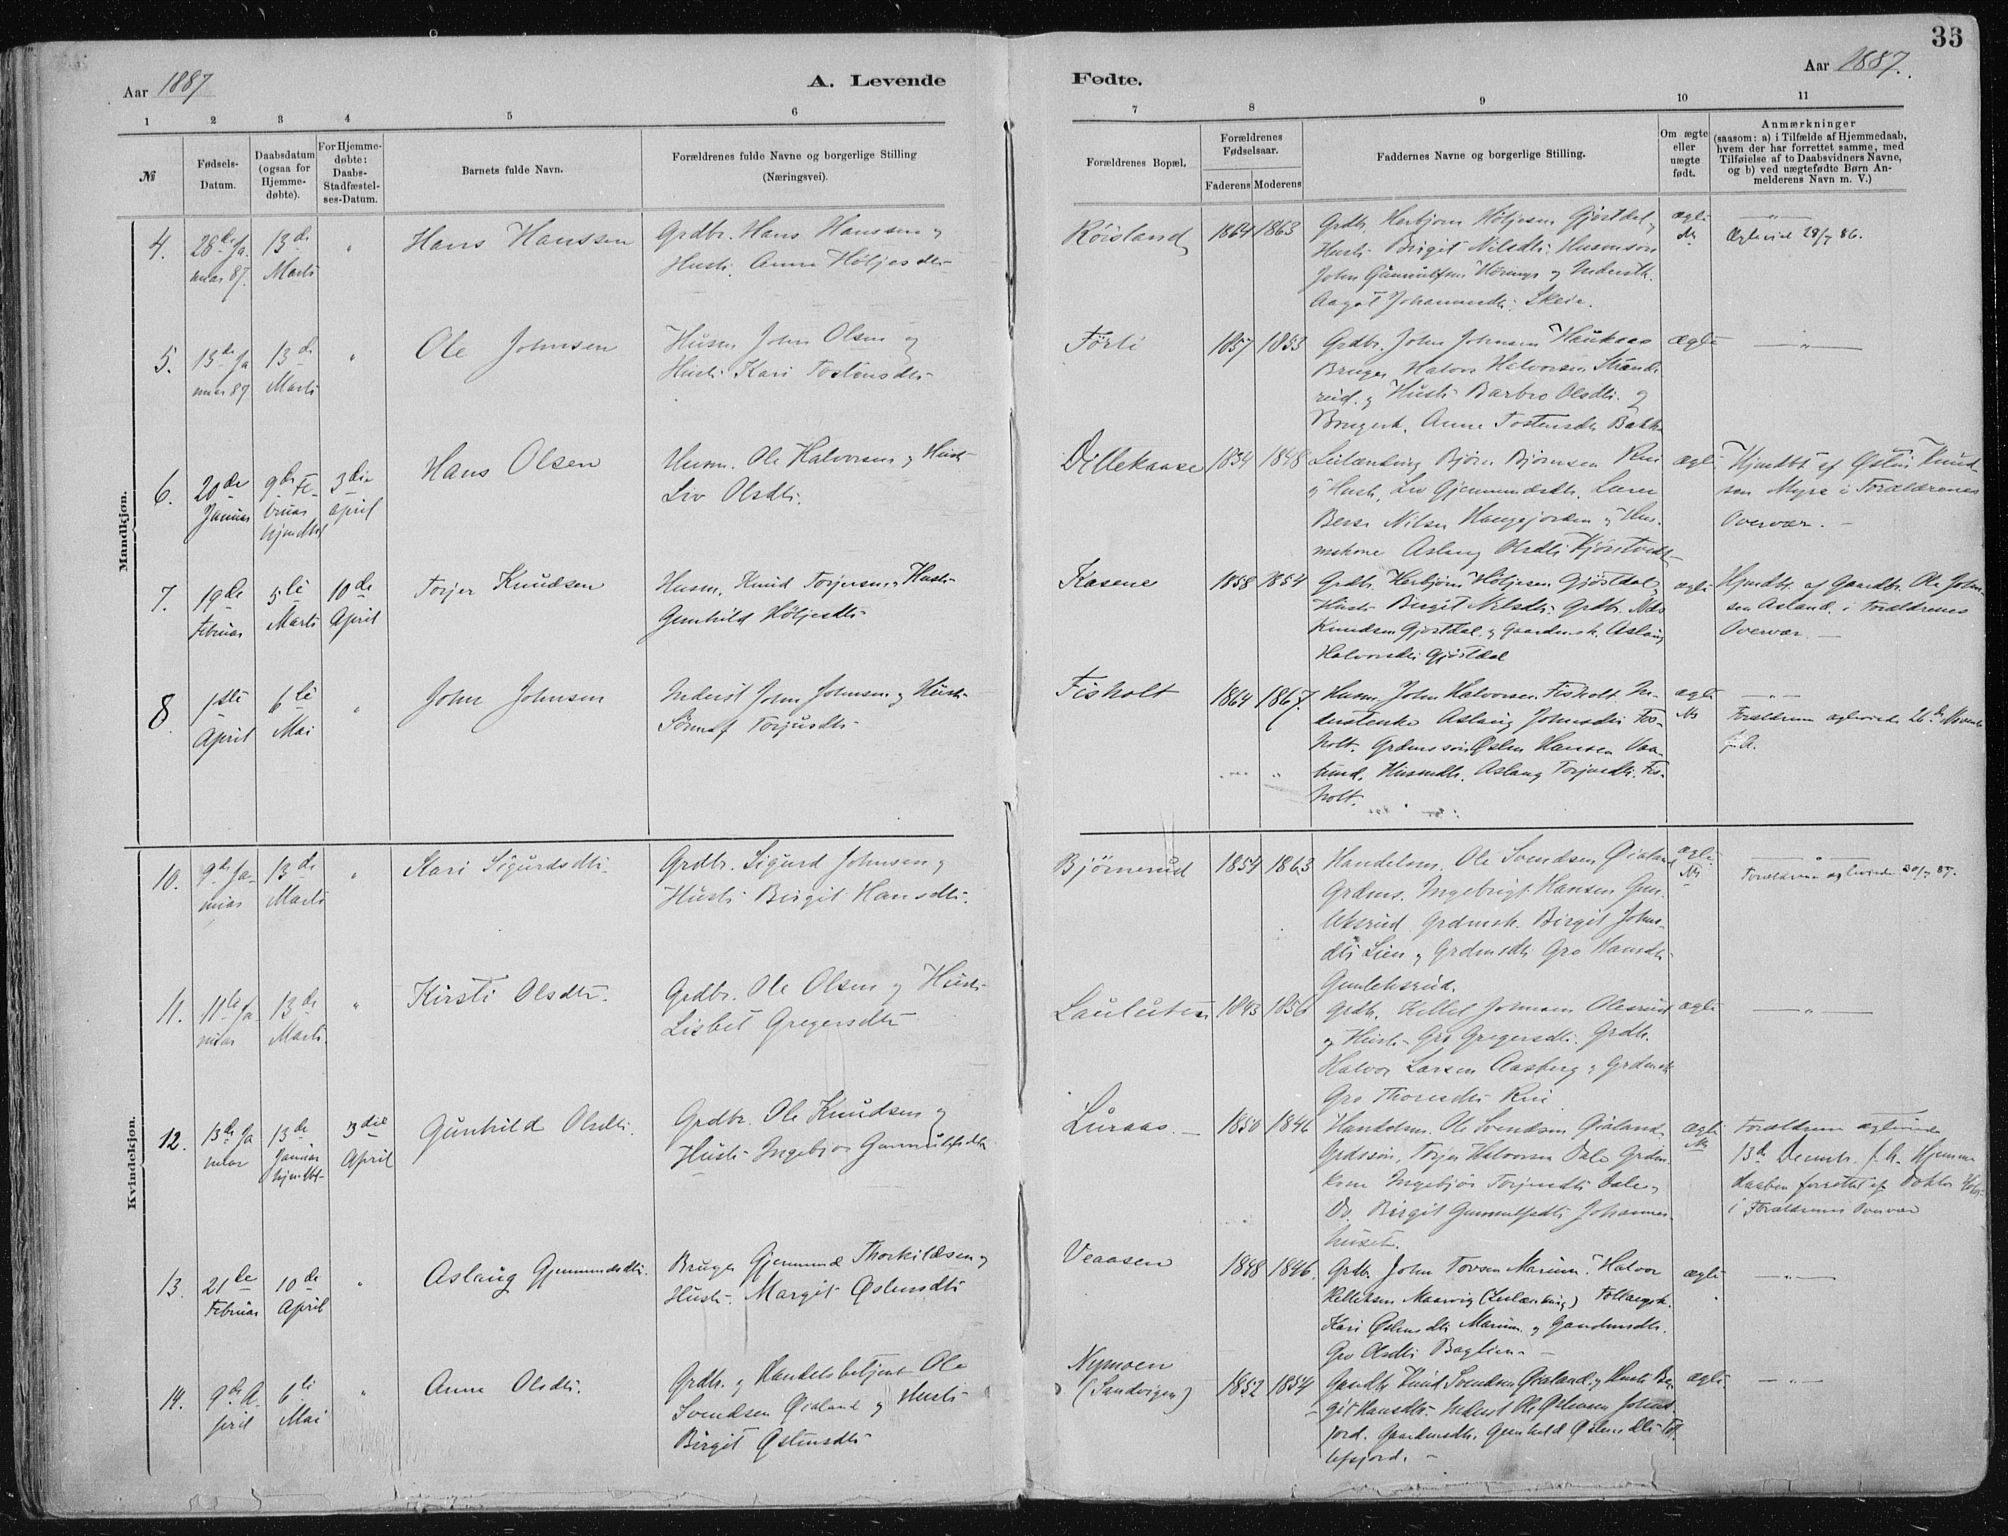 33
Aar 1887
A. Levende
Fødte.
Aar 1887.
1 2 3 4 5 6
7 8 9 10 11
№
Fødsels-
Datum.
Daabsdatum
(ogsaa for
Hjemme-
døbte).
For Hjemme-
døbte:
Daabs-
Stadfæstel-
ses-Datum.
Barnets fulde Navn.
Forældrenes fulde Navne og borgerlige Stilling
(Næringsvei).
Forældrenes Bopæl.
Forældrenes
Fødselsaar.
Faderens Moderens
Faddernes Navne og borgerlige Stilling.
Om ægte
eller
uægte
født.
Anmærkninger
(saasom: a) i Tilfælde af Hjemmedaab,
hvem der har forrettet samme, med
Tilføielse af to Daabsvidners Navne,
og b) ved uægtefødte Børn An-
melderens Navn m. V.)
Mandkjøn.
4.
28de Ja
nuar 87.
13de
Marts
"
Hans Hanssen
Grdbr. Hans Hanssen og
Hustr. Anne Høljesdtr
Røisland
1864 1863
Grdb. Herbjørn Høljesen Gjøstdal og
Hustr. Birgit Nilsdtr. Husmson
John Gunnulfsen og Inderstk.
Aagot Johannesdtr. Skeie.
ægte
"
Ægteviet 28/7 86.
5.
13de Ja
nuar 87
13de
Marts
"
Ole Johnsen
Husm John Olsen og
Hustr Kari Tostensdtr
Førli
1857 1853
Grdbr. John Johnsen Haukaas
Bruger Halvor Halvorsen Strand-
rud og Hustr Barbro Olsdtr. og
Brugerk. Anne Tostensdtr Bakk
ægte
"
6.
20de
Januar
9de Fe-
bruar
hjmdbt
3die
April
Hans Olsen
Husm. Ole Halvorsen og Hustr
Liv Olsdtr.
Dillekaase
1854 1848
Leilænding Bjørn Bjørnsen Rui
og Hustr. Liv Gjermundsdtr. Lærer
Nilsen Haugejorden og Hus-
mskone Aslaug Olsdtr
ægte
Hjmdbt af Østen Knud
sen Myre i Forældrenes
Overvær. —
7.
19de
Februar
5te
Marts
10de
April
Torjer Knudsen
Husm. Knud Torjersen og Hustr
Gunhild Høljesdtr
Kasene
1858 1854
Grdb. Herbjørn Høljesen Gjøstdal og
Hustr Birgit Nilsdtr. Grdbr. Nils
Knudsen Gjøstdal og Gaardmsk. Aslaug
Halvorsdtr Gjøstdal
ægte
Hjmdbt. af Gaardbr. Ole John-
sen Aasland i Forældrenes
Overvær. —
8.
1ste
April
6te
Mai
"
John Johnsen
Inderst John Johnsen og Hustr.
Torjusdtr
Fisholt
1864 1867.
Husm John Halvorsen Fisholt. In-
Aslaug Johnsdtr Fis-
holt. Grdmssøn Østen Hansen Vaa-
lund. Husmdtr. Aslaug Torjusdtr. Fis-
holt.
ægte
Forældrene ægteviede 26de Novembr
f.A.
Kvindekjøn.
10.
9de Ja-
nuar
13de
Marts
"
Kari Sigurdsdtr.
Grdbr. Sigurd Johnsen og
Hustr Birgit Hansdtr.
Bjørnerud
1854 1863
Handelsm. Ole Svendsen Øialand
Grdms. Ingebrigt Hansen Gun-
leksrud Grdmsk. Birgit Johns-
dtr Lien og Grdmsdtr Gro Hansdtr
Gunleksrud.
ægte
"
Forældrene ægteviede
11.
11te Ja-
nuar
13de
Marts.
"
Kirsti Olsdtr.
Grdbr. Ole Olsen og Hustr
Lisbet Gregersdtr
1843 1856
Grdb. Kittel Johnsen Olesrud
og Hustr Gro Gregersdtr. Grdb.
Halvor Larsen Aasberg og Grdmsk
Gro Thorsdtr Rui
ægte
"
12.
13de Ja
nuar
13de
Januar
hjmdbt
3die
April
Gunhild Olsdtr.
Grdbr. Ole Knudsen og
Hustr Ingebjør Gunnulfsdtr
Luraas —
1850 1846
Handelsm. Ole Svendsen Øialand
Grdssøn, Torjer Halvorsen Dale Grdm-
kone Ingebjør Torjersdtr Dale og
Do Birgit Gunnulfsdtr Johannes-
huset.
ægte
Forældrene ægteviede
13de Decembr. f. A. Hjemme
daaben forrettet af Doktor
i Forældrenes Overvær
13.
21de
Februar
10de
April
"
Aslaug Gjermundsdtr.
Bruger Gjermund Thorkildsen og
Hustr. Margit Østensdtr
Veaasen
1848 1846.
Grdb. John Tovsen Marum. Halvor
Kittilsen Maarvig (Leilænding)
Kari Østensdtr Marum og Gaardmsdtr.
Gro Olsdtr Baglien —
ægte
"
14.
9de A-
pril
6te
Mai
"
Anne Olsdtr.
Grdb. og Handelsbetjent Ole
Svendsen Øialand og Hustr
Birgit Østensdtr
Nymoen
(Sandvigen)
1852 1854
Gaardb Knud Svendsen Øialand og Hustr Bir-
git Hansdtr. Inderst Ole
jord. Gaardmsdtr. Gunhild Østensdtr
ægte
"